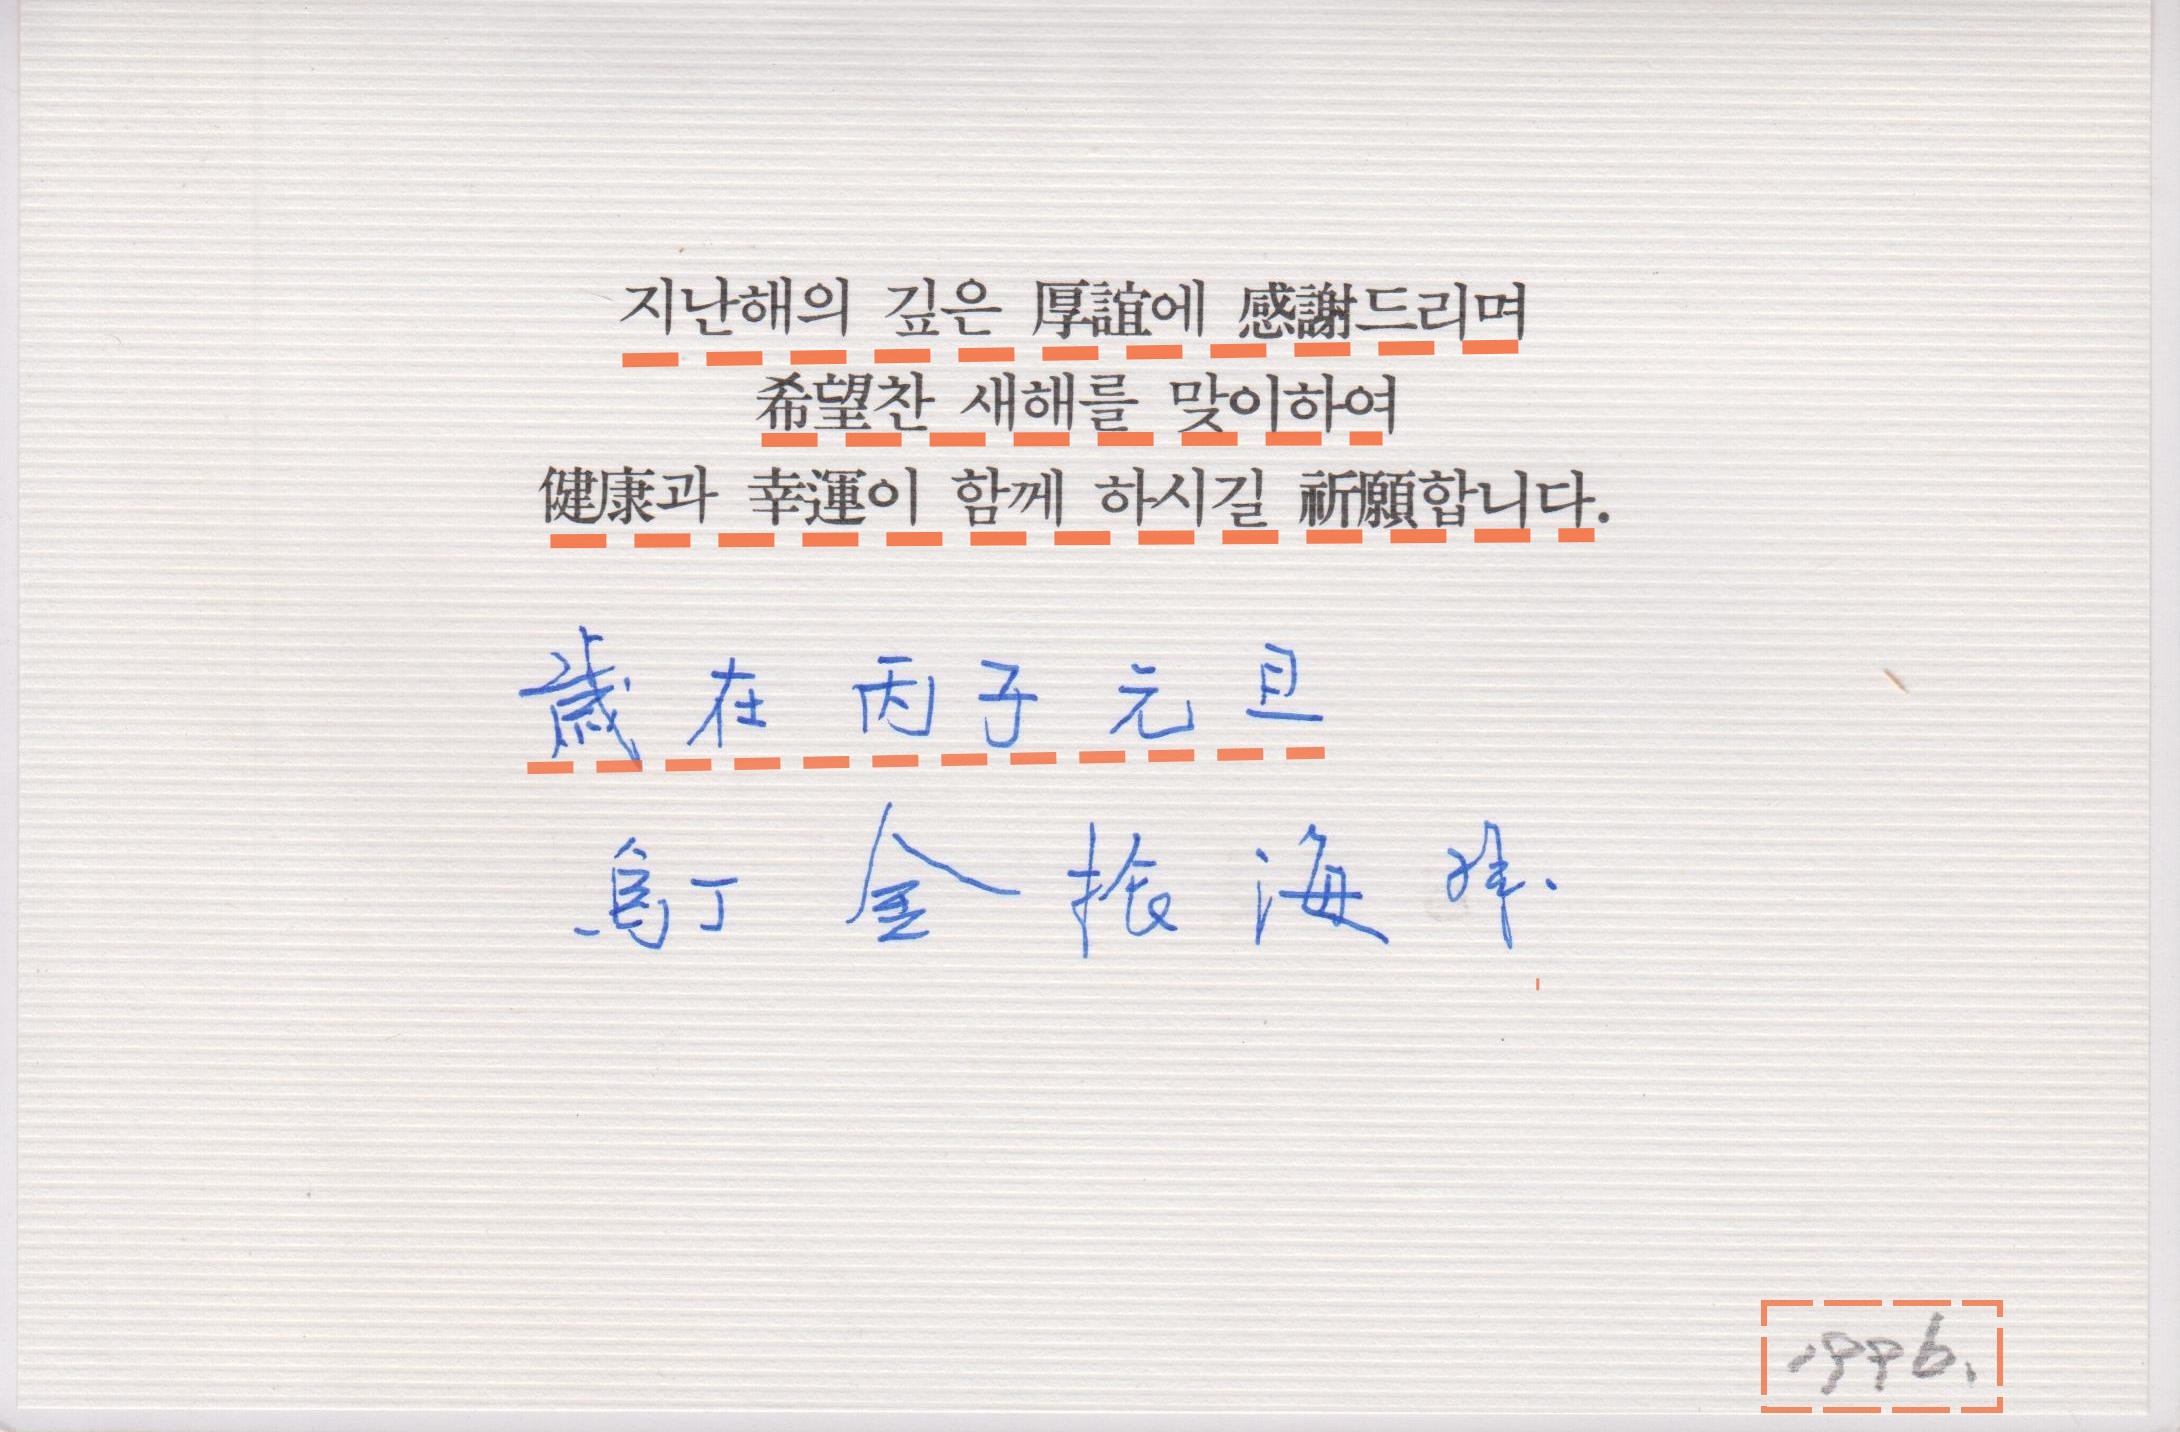 지난해의 깊은 厚誼에 感謝드리며
希望찬 새해를 맞이하여
健康과 幸運이 함께 하시길 祈願합니다.
歲在丙子元旦
烏丁 金振海 拜.
1996.